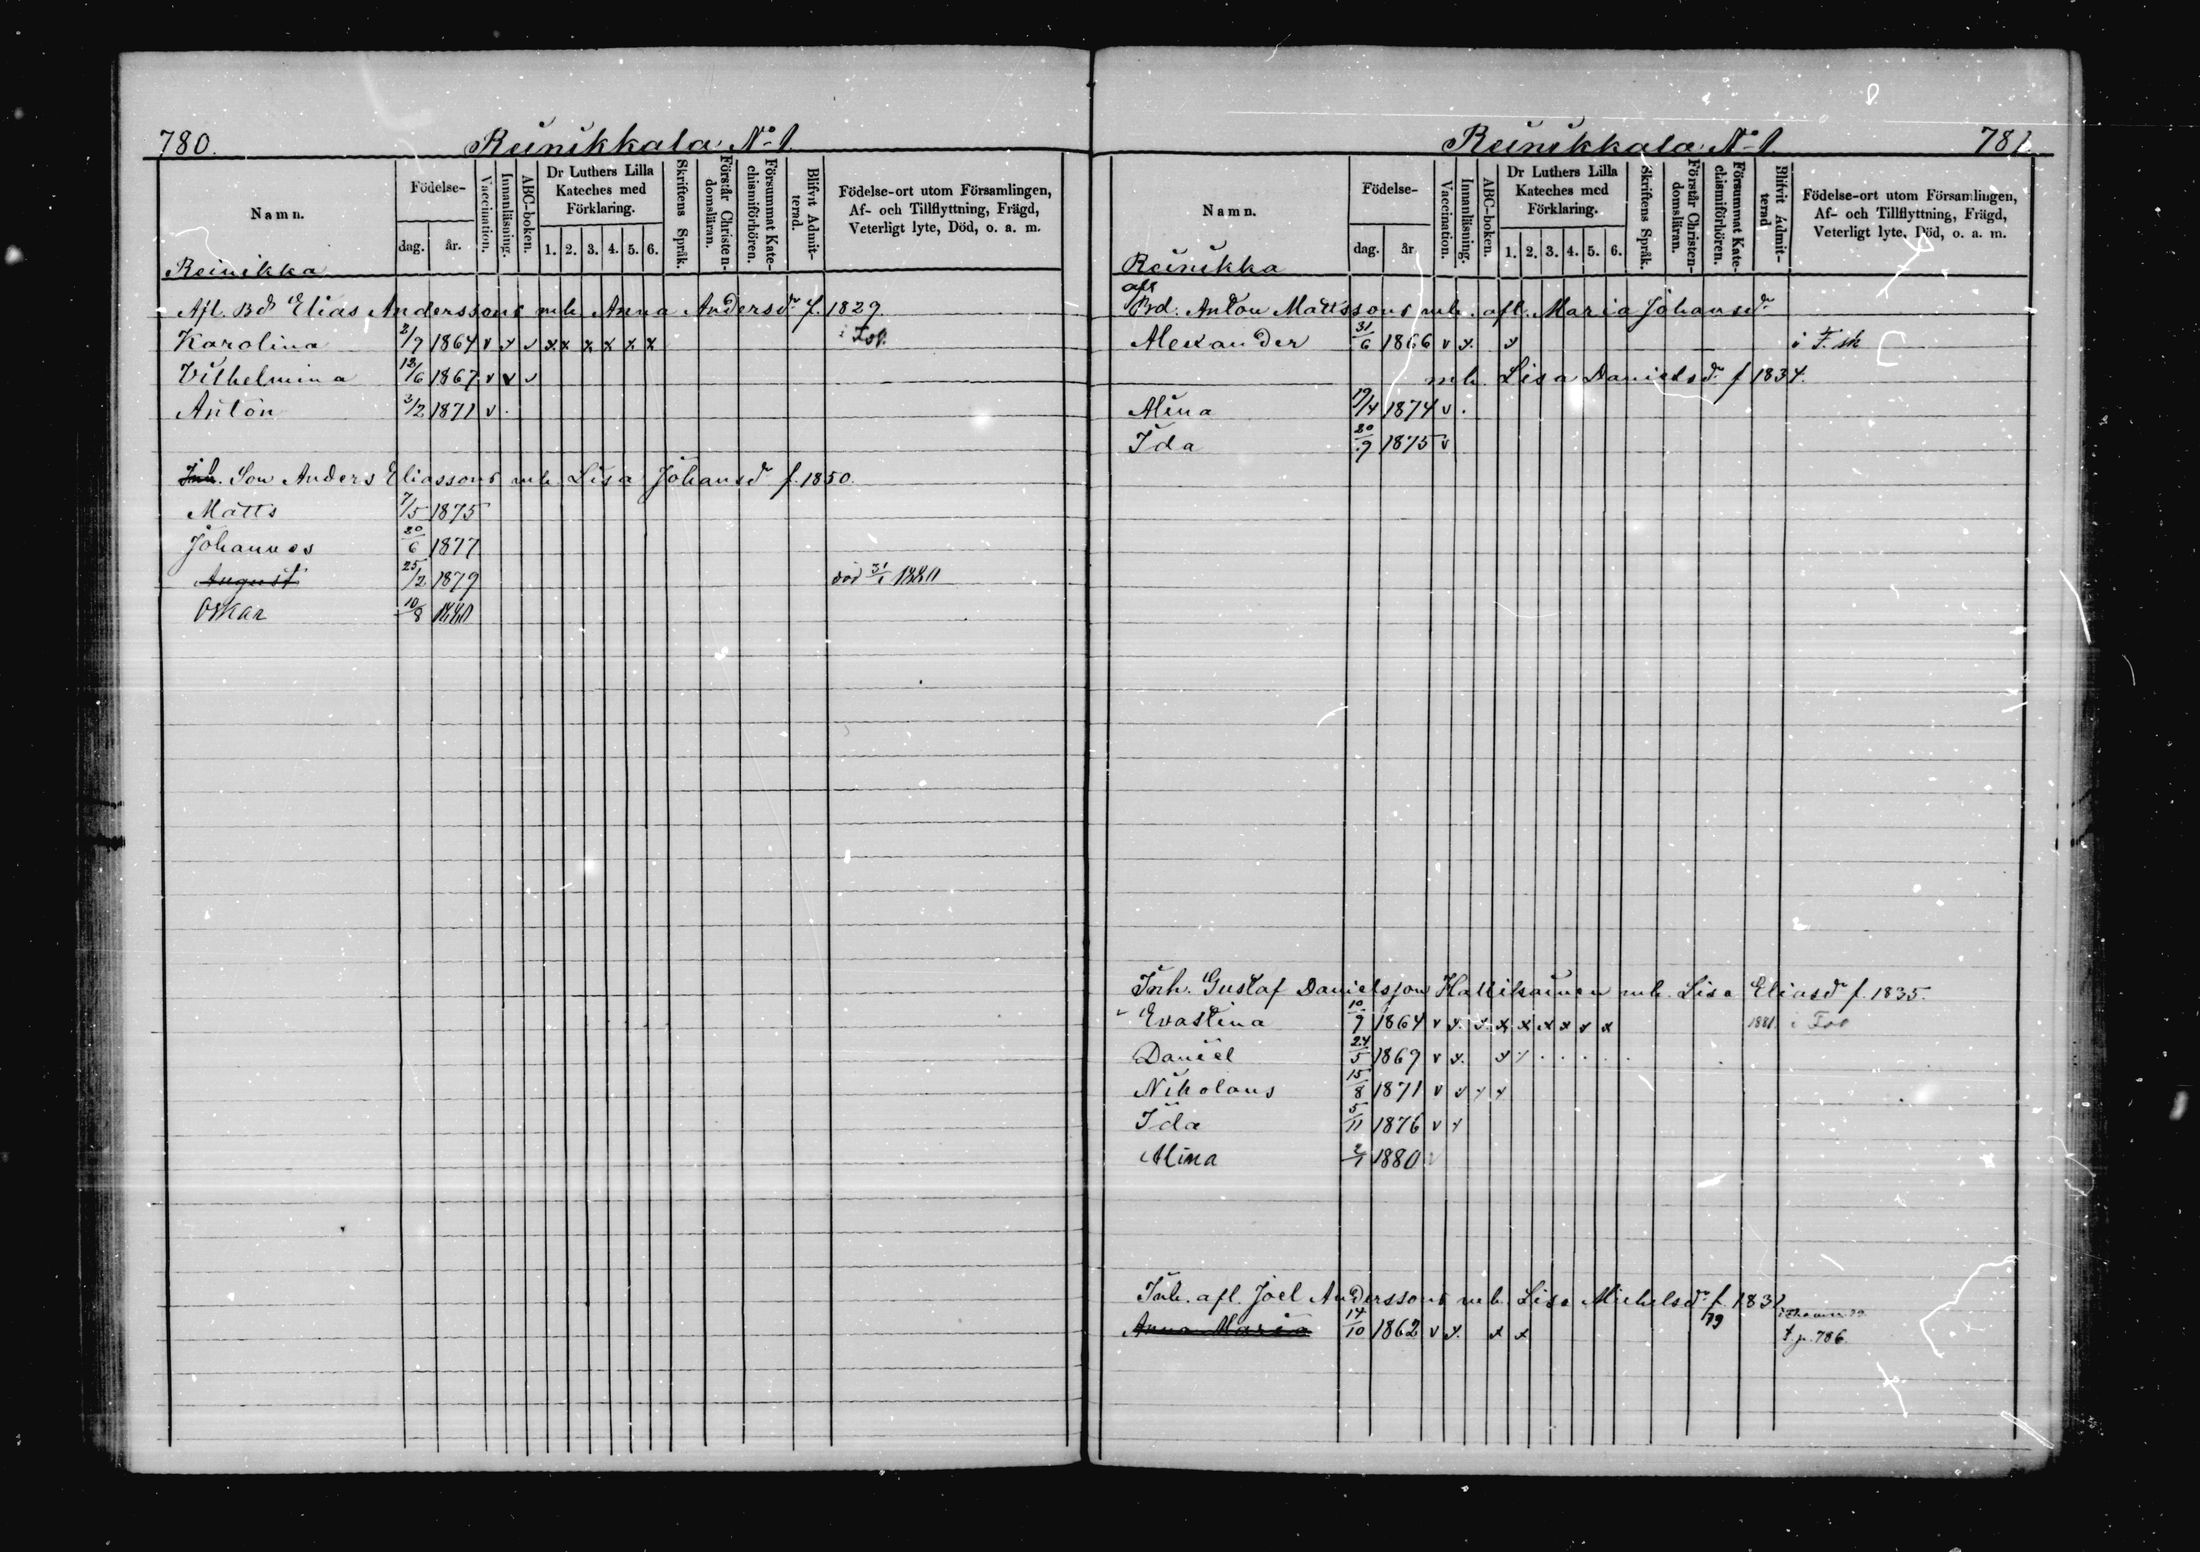 780. Reinikkala No 1.
Namn.
Födelse-
dag. år.
Vaccination.
Innanläsning.
ABC-boken.
Dr Luthers Lilla
Kateches med
Förklaring.
1. 2. 3. 4. 5. 6.
Skriftens Språk.
Förstår Christen-
domsläran.
Försummat Kate-
chismiförhören.
Blifvit Admit-
terad.
Födelse-ort utom Församlingen,
Af- och Tillflyttning, Frägd,
Veterligt lyte, Död, o. a. m.
Reinikka
Afl. Bd Elias Anderssons mh Anna Andersdr f. 1829.
Karolina 2/7 1864 v x v x x x x x x
Vilhelmina 12/6 1867 v v v
Anton 3/2 1871 v .
Inh. Son Anders Eliassons mh. Lisa Johansdr f. 1850.
Matts 7/5 1875
Johannes 20/6 1877
August 25/2 1879 död 31/1 1880
Oskar 10/8 1880
Reinikkala No 1. 781.
Namn.
Födelse-
dag. år
Vaccination.
Innanläsning.
ABC-boken.
Dr Luthers Lilla
Kateches med
Förklaring.
1. 2. 3. 4. 5. 6.
Skriftens Språk.
Förstår Christen-
domsläran.
Försummat Kate-
chismiförhören.
Blifvit Admit-
terad
Födelse-ort utom Församlingen,
Af- och Tillflyttning, Frägd,
Veterligt lyte, Död, o. a. m.
Reinikka
afl
Bd. Anton Mattssons mh. afl. Maria Johansdr
Alexander 31/6 1866 v x. x i F. sk
mh. Lisa Danielsdr f 1834.
Alina 19/4 1874 v .
Ida 20/9 1875 v
Inh. Gustaf Danielsson Hallikainen mh. Lisa Eliasdr f. 1835.
Evastina 10/9 1864 v x. x x x x x x x 1881
Daniel 24/5 1869 v x. x / . . . . .
Nikolaus 15/8 1871 v x x x
Ida 5/11 1876 v x
Alina 2/1 1880 v
Inh. afl. Joel Anderssons mh. Lisa Michelsdr f 1831
Anna Maria 14/10 1862 v x. x x 79
f. p. 786.